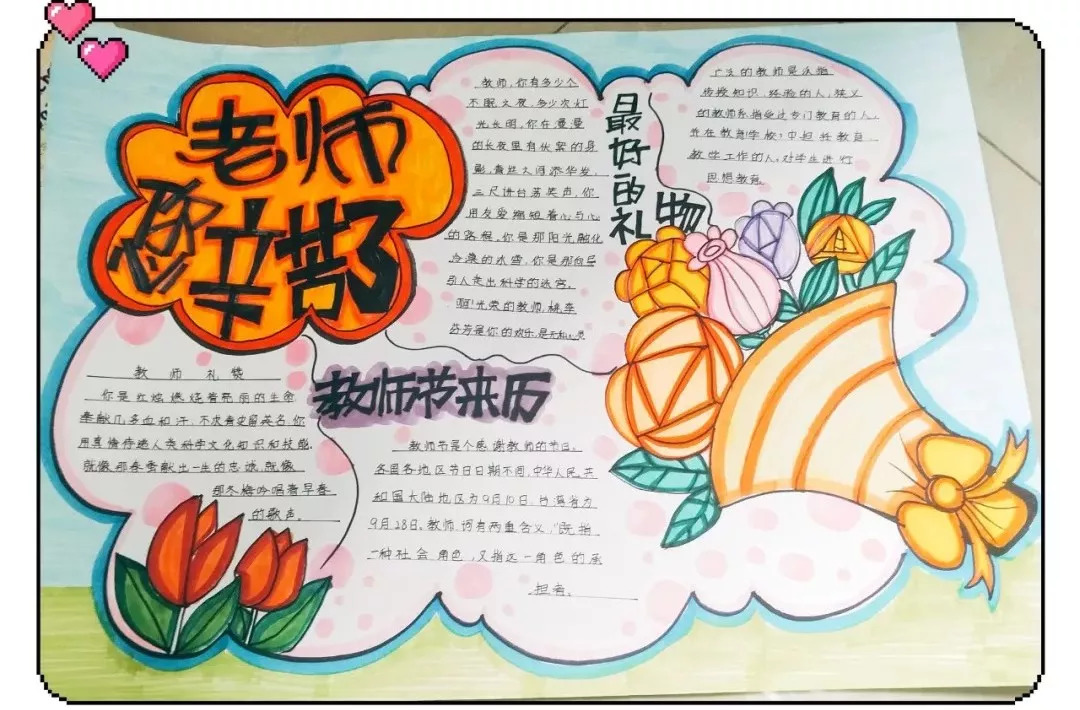 老师
你辛苦了
教师，你有多少个
不眠之夜，多少次灯
光长明，你在漫漫
的长夜里有伏案的身
影，青丝之间添华发，
三尺讲台荡笑声，你
用友爱缩短着心与心
的路程，你是那阳光融化
冷漠的冰雪，你是那向导
引人走出科学的迷宫。
啊！光荣的教师，桃李
芬芳是你的欢乐，是
最好的礼物
广泛的教师是泛指
传授知识、经验的人，狭义
的教师系指受过专门教育的人，
并在教育学校？中担任教育、
教学工作的人。对学生进行
思想教育。
教师礼赞
你是红烛燃烧着亮丽的生命
奉献几多血和汗，不求青史留英名，你
用真情传递人类科学文化知识和技能，
就像那春蚕献出一生的忠诚，就像
那冬梅吟唱着早春
的歌声。
教师节来历
教师节是个感谢教师的节日。
各国各地区节日日期不同，中华人民共
和国大陆地区为9月10日，台湾省为
9月28日。教师，词有两重含义，"既指
一种社会角色，又指这一角色的承
担者。